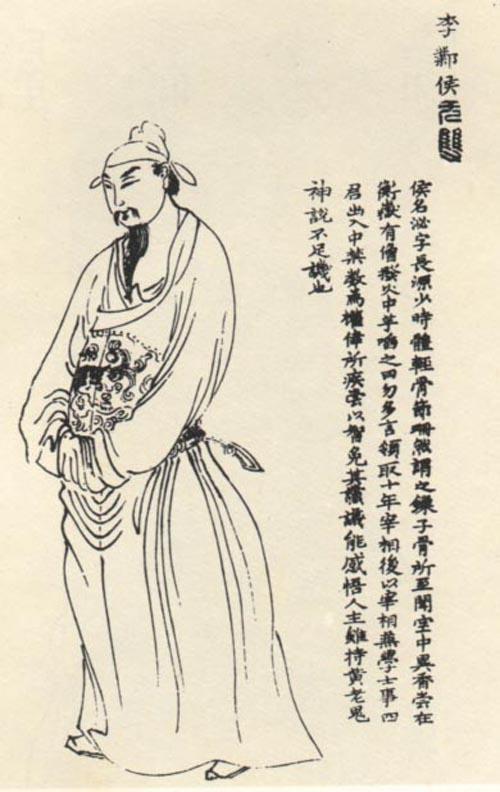 李鄴侯
侯名泌字長源少時體輕骨節珊然謂之鏁子骨所至聞室中異香嘗在
衡嶽有僧撥火中芋啗之曰勿多言領取十年宰相後以宰相兼學士事四
君出入中禁數為權倖所疾嘗以智免其讜議能感悟人主雖持黃老鬼
神說不足譏也